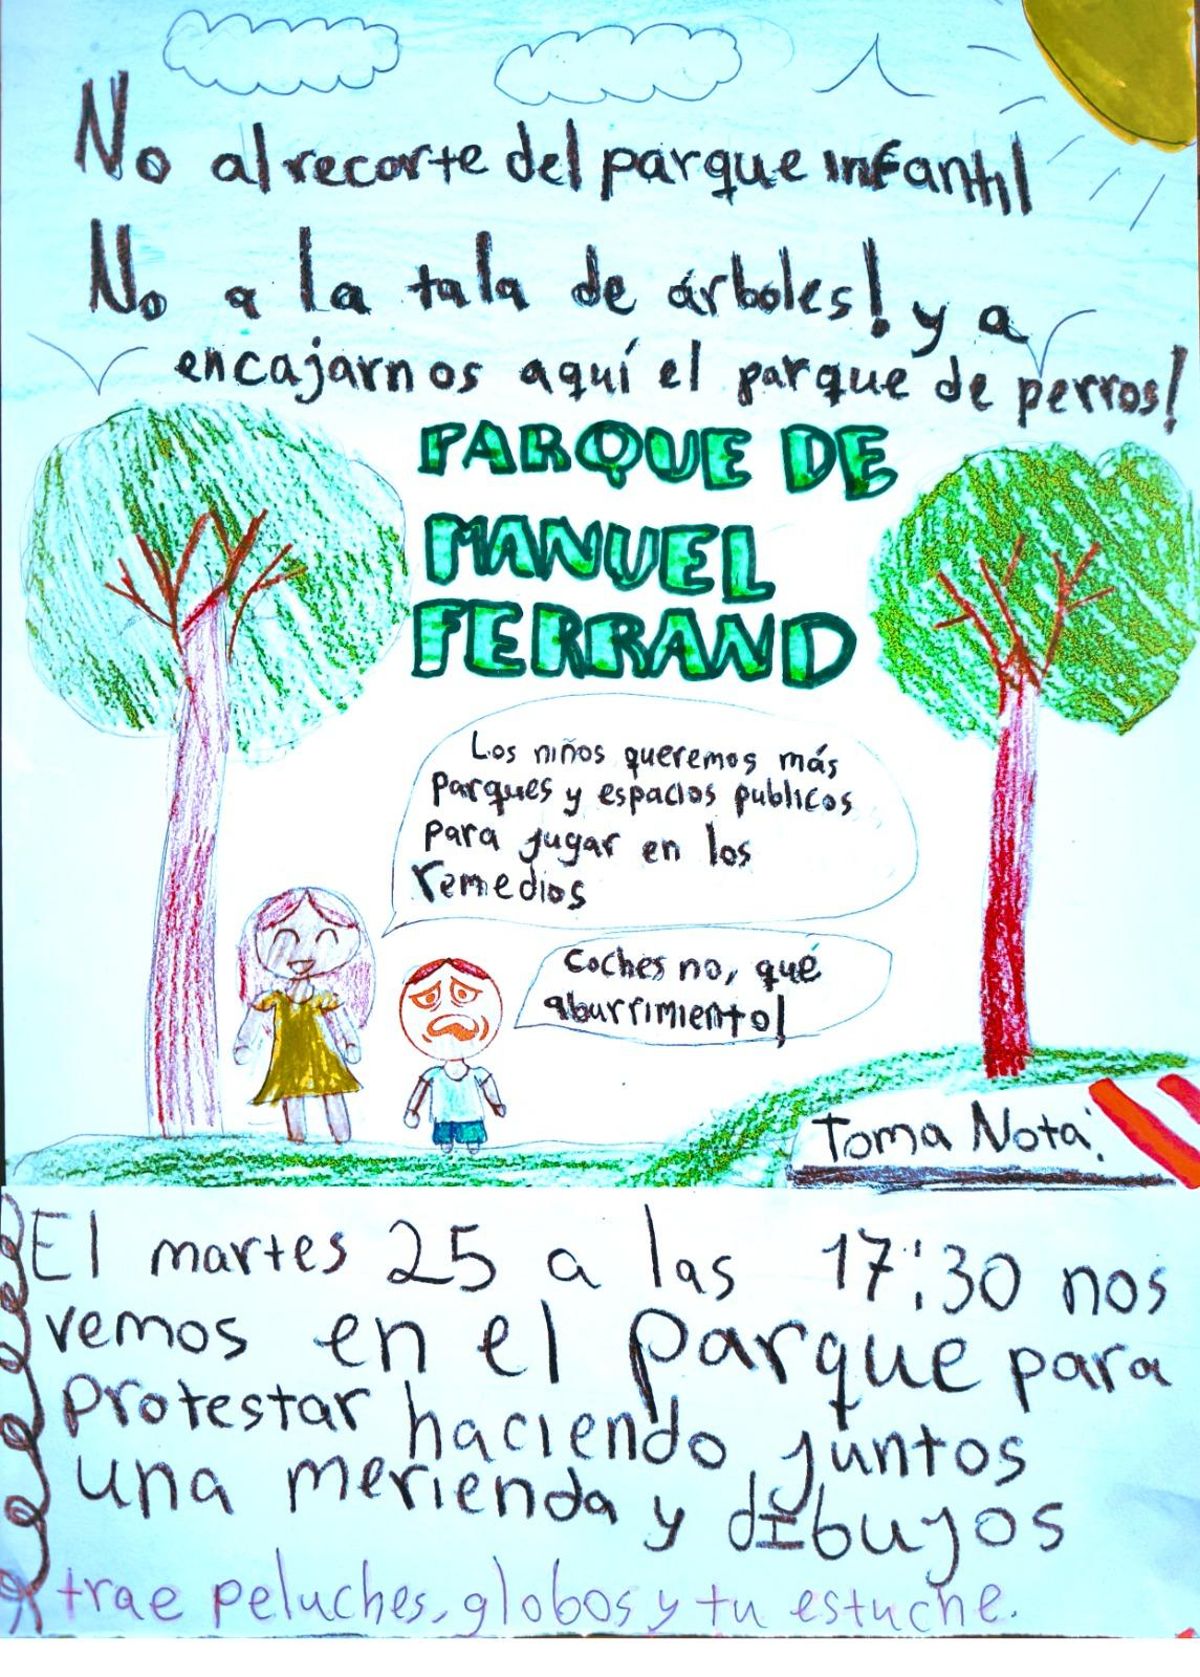 No al recorte del parque infantil
No a la tala de árboles! y a
encajarnos aquí el parque de perros!
PARQUE DE
MANUEL
FERRAND
Los niños queremos más
parques y espacios publicos
para jugar en los
remedios
Coches no, qué
aburrimiento!
Toma Nota:
El martes 25 a las 17:30 nos
vemos en el parque para
protestar haciendo juntos
una merienda y dibujos
trae peluches, globos y tu estuche.